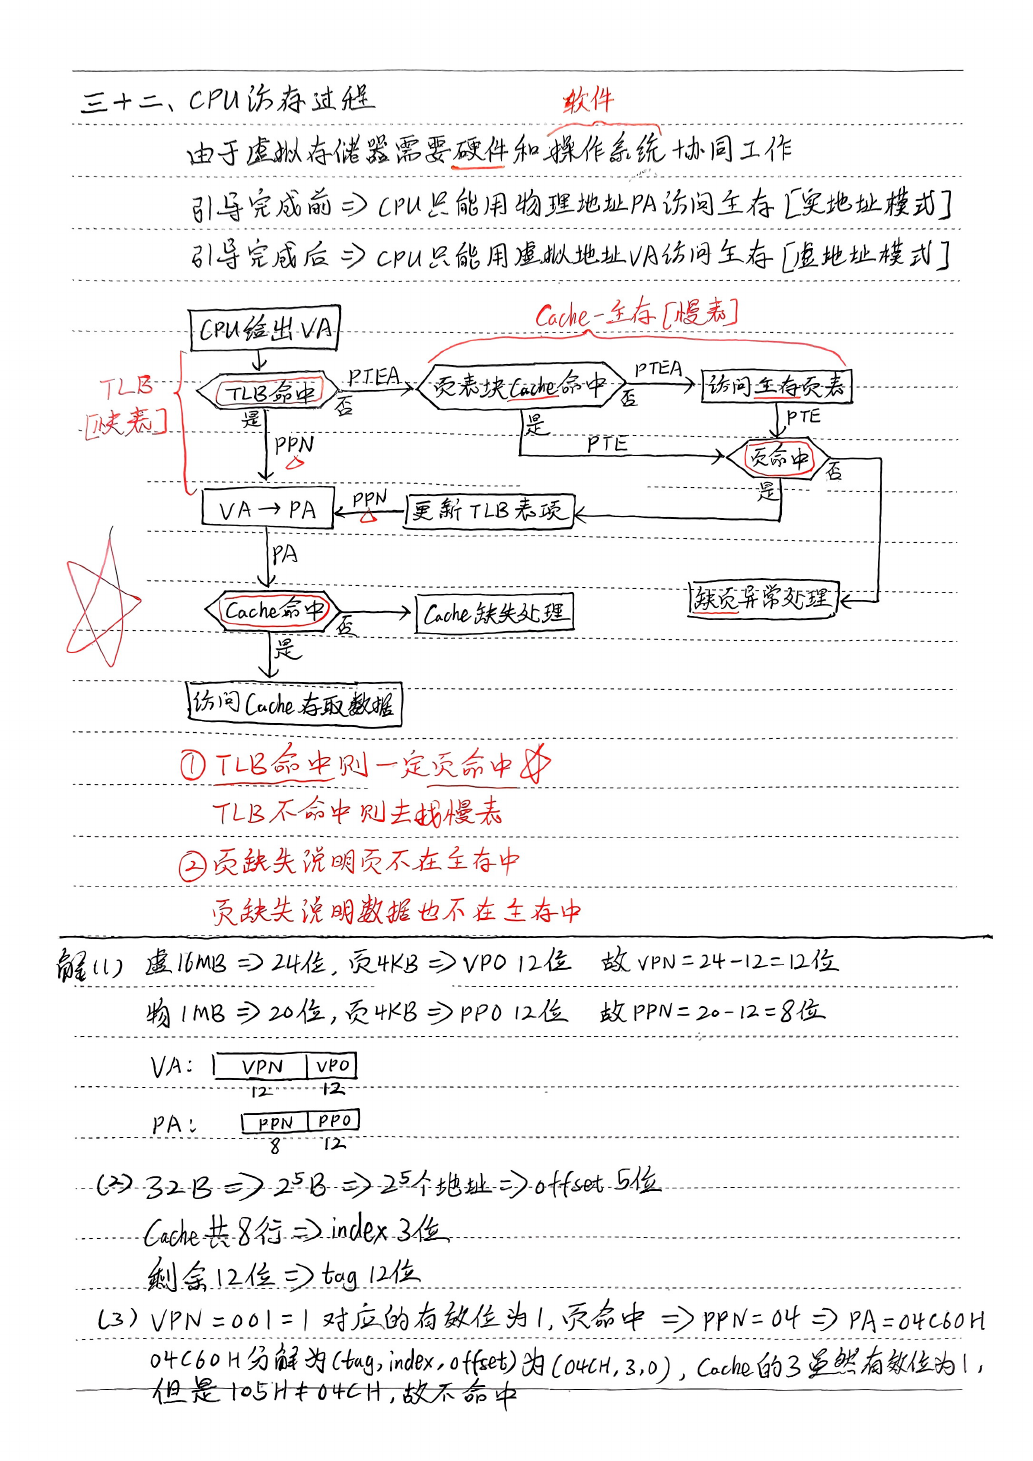 三十二、CPU访存过程
软件
由于虚拟存储器需要硬件和操作系统协同工作
引导完成前⇒CPU只能用物理地址PA访问主存[实地址模式]
引导完成后⇒CPU只能用虚拟地址VA访问主存[虚地址模式]
Cache-主存[慢表]
CPU给出VA
TLB
[快表]
TLB命中
PTEA
否
页表块Cache命中
PTEA
否
访问主存页表
是
PPN
是
PTE
PTE
页命中
否
是
VA→PA
PPN
更新TLB表项
PA
缺页异常处理
Cache命中
否
Cache缺失处理
是
访问Cache存取数据
①TLB命中则一定页命中
TLB不命中则去找慢表
②页缺失说明页不在主存中
页缺失说明数据也不在主存中
解(1) 虚16MB⇒24位,页4KB⇒VPO 12位 故VPN=24-12=12位
物1MB⇒20位,页4KB⇒PPO 12位 故PPN=20-12=8位
VA: VPN VPO
12 12
PA: PPN PPO
8 12
(2) 32B⇒2⁵B⇒2⁵个地址⇒offset 5位
Cache共8行⇒index 3位
剩余12位⇒tag 12位
(3) VPN=001=1 对应的有效位为1,页命中⇒PPN=04⇒PA=04C60H
04C60H分解为(tag,index,offset)为(04CH,3,0),Cache的3虽然有效位为1,
但是105H≠04CH,故不命中